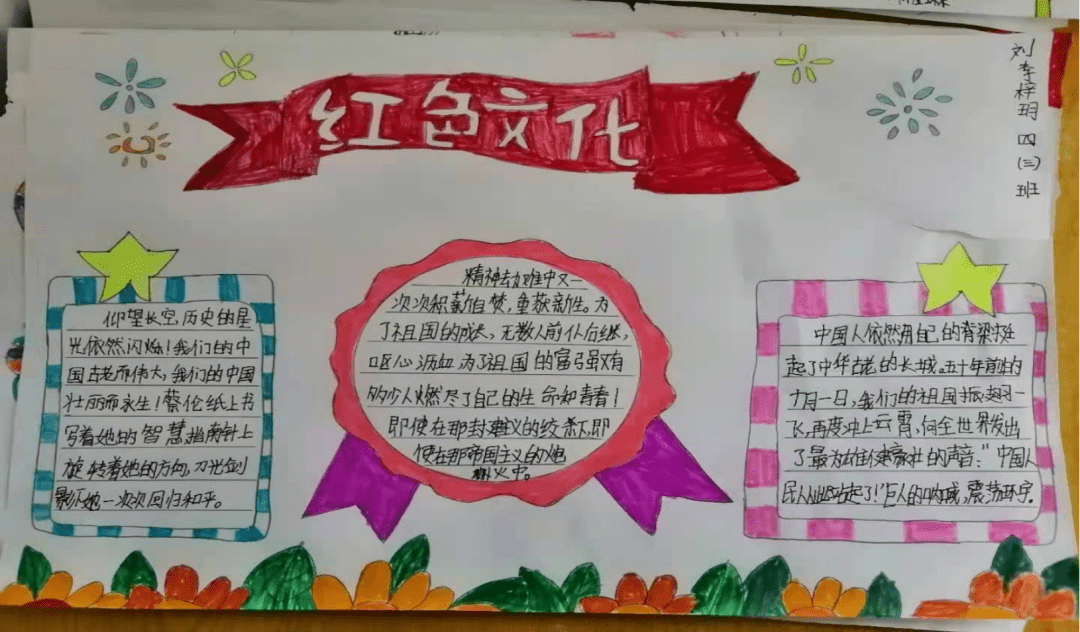 红色文化
刘李梓玥 四(三)班
仰望长空,历史的星
光依然闪烁!我们的中
国古老而伟大,我们的中国
壮丽而永生!蔡伦纸上书
写着她的智慧,指南针上
旋转着她的方向,刀光剑
影不她一次次回归和平。
精神去劫难中又一
次次积薪自焚,重获新生。为
了祖国的成长,无数人前仆后继,
呕心沥血,为了祖国的富强又有
多少人燃尽了自己的生命和青春!
即使在那封建义的绞杀下,即
使在那帝国主义的炮
火中。
中国人依然用自己的脊梁挺
起了中华古老的长城,五十年前的
十月一日,我们的祖国振翅一
飞,再度冲上云霄,向全世界发出
了最为雄强豪壮的声音:"中国人
民从此站起了!"巨人的呐喊,震荡环宇。